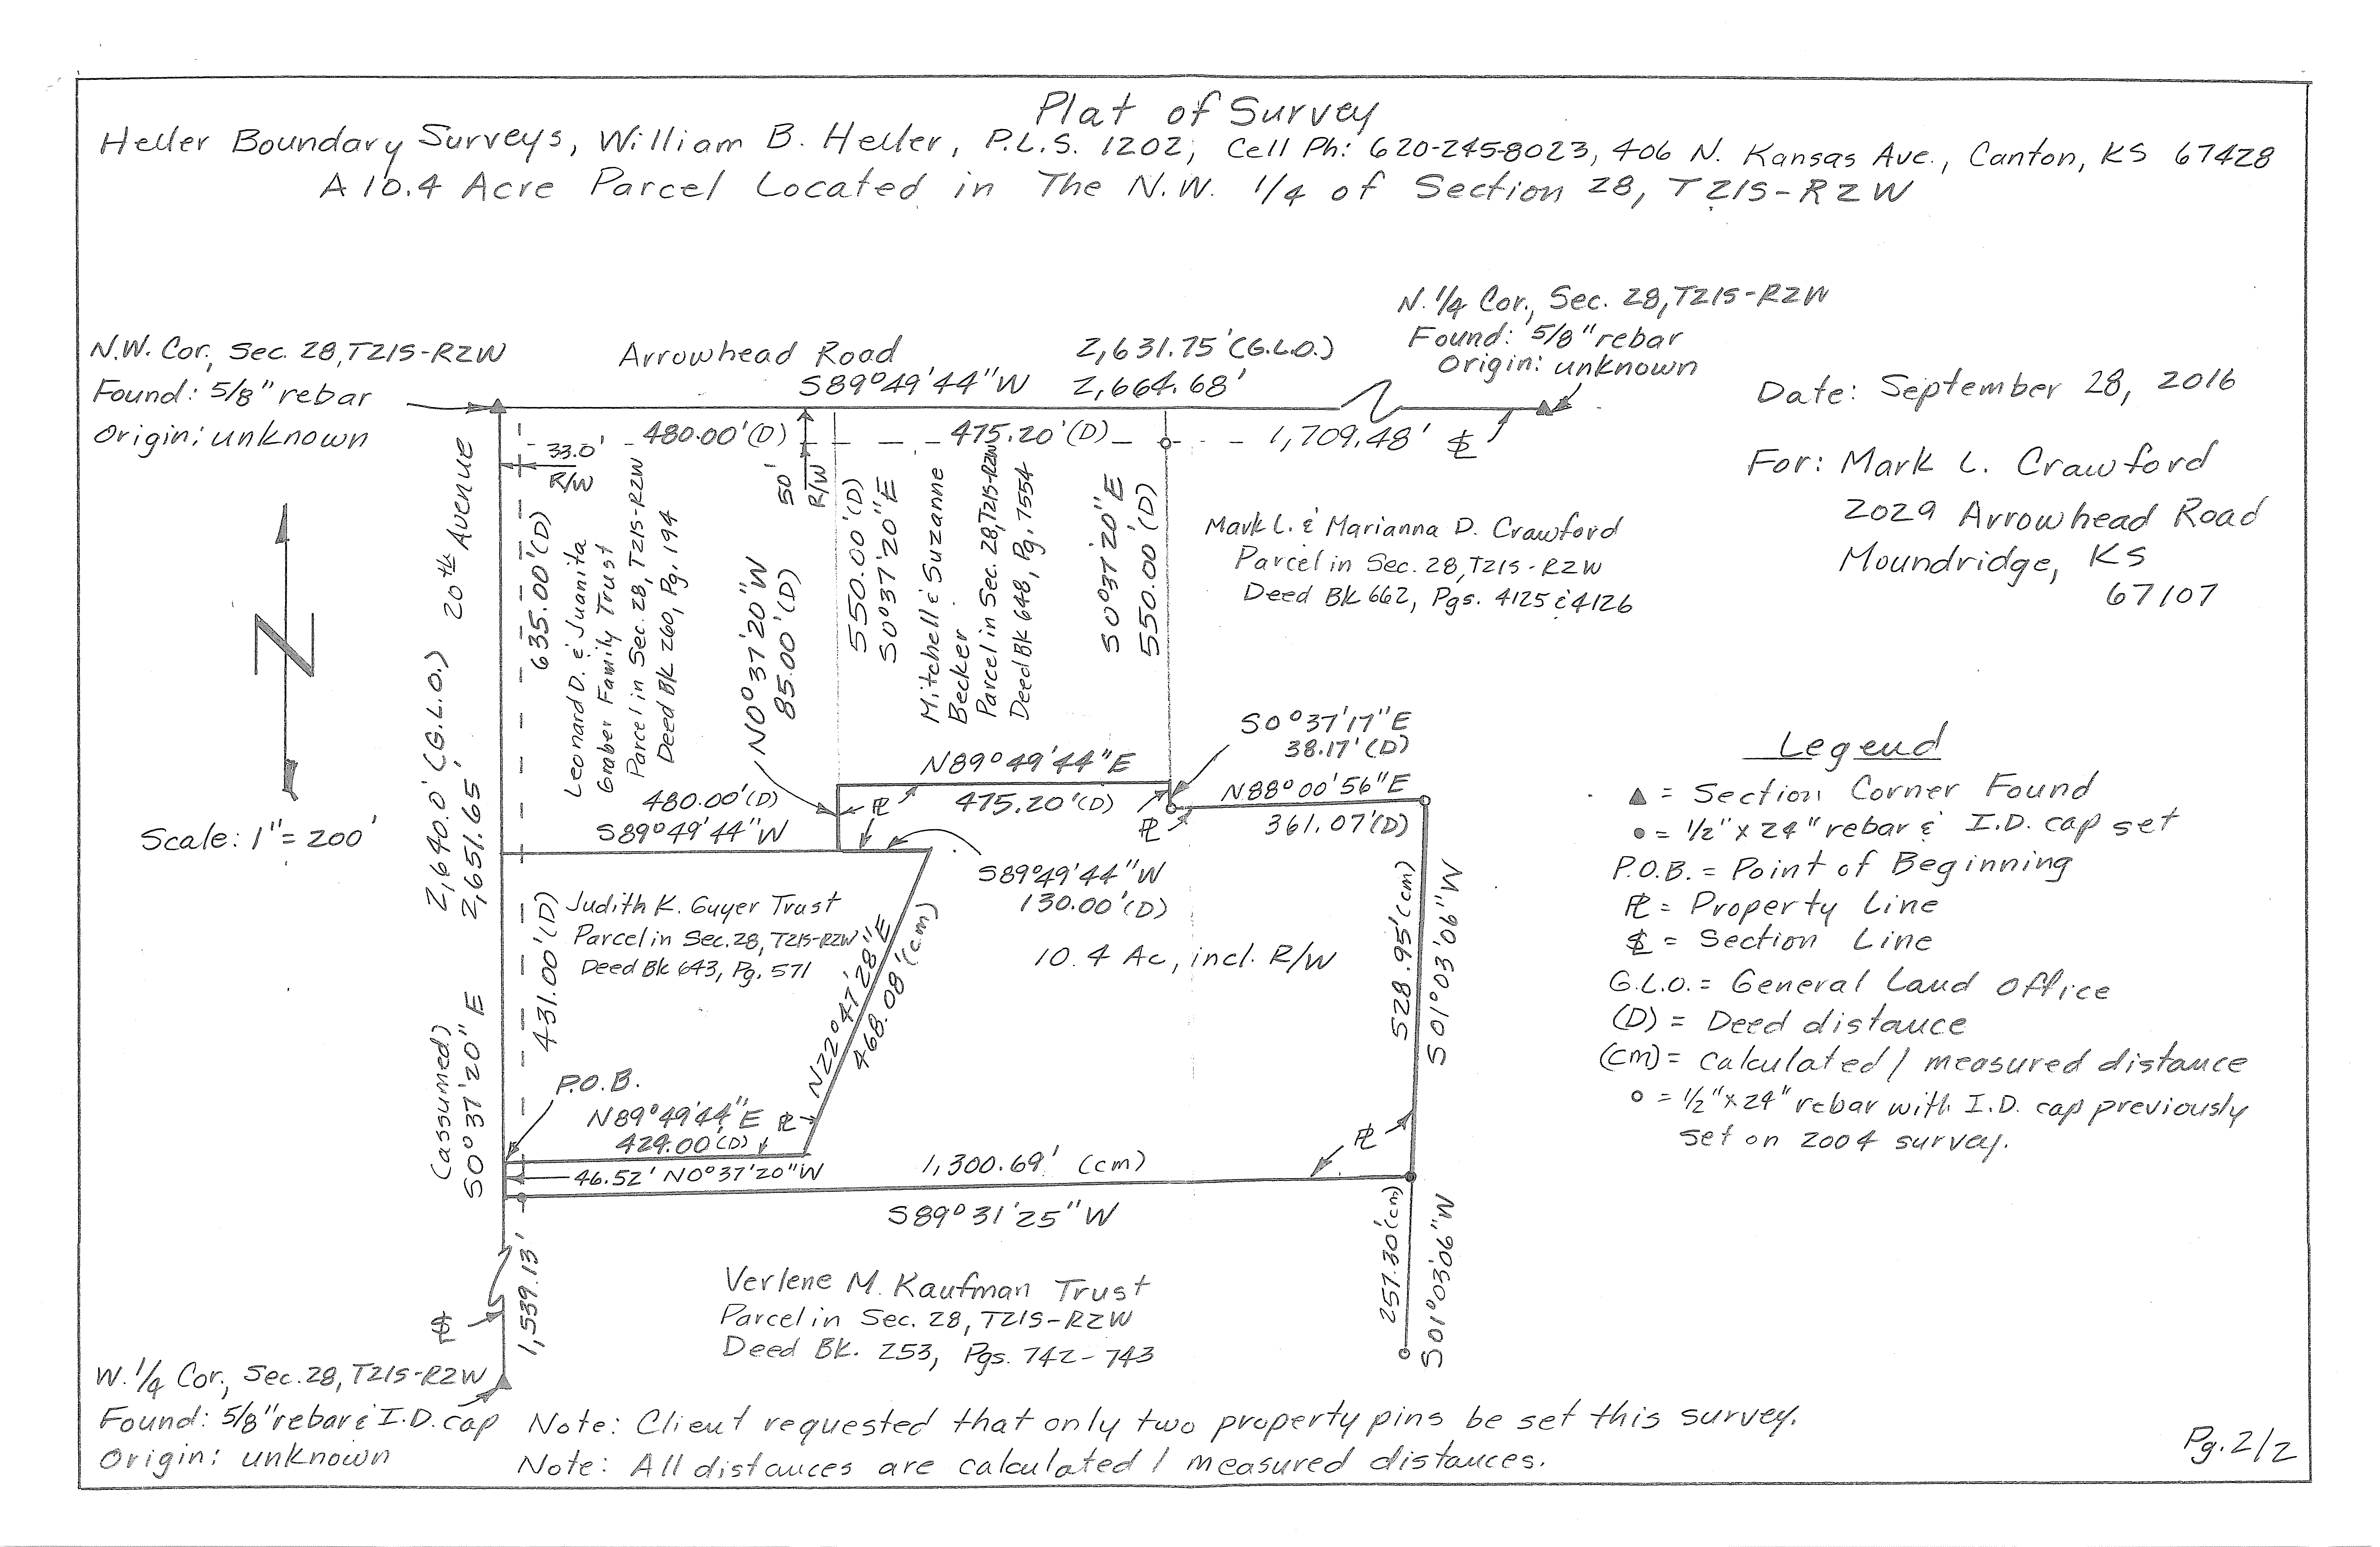 Plat of Survey
Heller Boundary Surveys, William B. Heller, P.L.S. 1202, Cell Ph: 620-245-8023, 406 N. Kansas Ave., Canton, KS 67428
A 10.4 Acre Parcel Located in The N.W. 1/4 of Section 28, T21S-R2W
N.W. Cor., Sec. 28, T21S-R2W
Found: 5/8" rebar
Origin: unknown
Arrowhead Road
2,631.75' (G.L.O.)
S89°49'44"W 2,664.68'
N. 1/4 Cor., Sec. 28, T21S-R2W
Found: 5/8" rebar
Origin: unknown
Date: September 28, 2016
For: Mark L. Crawford
2029 Arrowhead Road
Moundridge, KS
67107
33.0'
R/W
480.00' (D)
50'
R/W
475.20' (D)
1,709.48' SL
20th Avenue
2,640.0' (G.L.O.)
2,651.65'
(assumed)
S0°37'20"E
635.00' (D)
Leonard D. & Juanita
Graber Family Trust
Parcel in Sec. 28, T21S-R2W
Deed Bk 260, Pg. 194
N0°37'20"W
85.00' (D)
550.00' (D)
S0°37'20"E
Mitchell & Suzanne
Becker
Parcel in Sec. 28, T21S-R2W
Deed Bk 648, Pg. 7554
S0°37'20"E
550.00' (D)
Mark L. & Marianna D. Crawford
Parcel in Sec. 28, T21S-R2W
Deed Bk 662, Pgs. 4125 & 4126
Scale: 1" = 200'
480.00' (D)
S89°49'44"W
N89°49'44"E
PL 475.20' (D) PL
S0°37'17"E
38.17' (D)
N88°00'56"E
361.07' (D)
S89°49'44"W
130.00' (D)
431.00' (D)
Judith K. Guyer Trust
Parcel in Sec. 28, T21S-R2W
Deed Bk 643, Pg. 571
N22°47'28"E
468.08' (cm)
10.4 Ac, incl. R/W
528.95' (cm)
S01°03'06"W
P.O.B.
N89°49'44"E PL
429.00' (D)
46.52' N0°37'20"W
1,300.69' (cm)
PL
S89°31'25"W
257.30' (cm)
S01°03'06"W
1,539.13'
SL
Verlene M. Kaufman Trust
Parcel in Sec. 28, T21S-R2W
Deed Bk. 253, Pgs. 742-743
Legend
▲ = Section Corner Found
● = 1/2" x 24" rebar & I.D. cap set
P.O.B. = Point of Beginning
PL = Property Line
SL = Section Line
G.L.O. = General Land Office
(D) = Deed distance
(cm) = calculated / measured distance
○ = 1/2" x 24" rebar with I.D. cap previously
set on 2004 survey.
W. 1/4 Cor., Sec. 28, T21S-R2W
Found: 5/8" rebar & I.D. cap
Origin: unknown
Note: Client requested that only two property pins be set this survey.
Note: All distances are calculated / measured distances.
Pg. 2/2